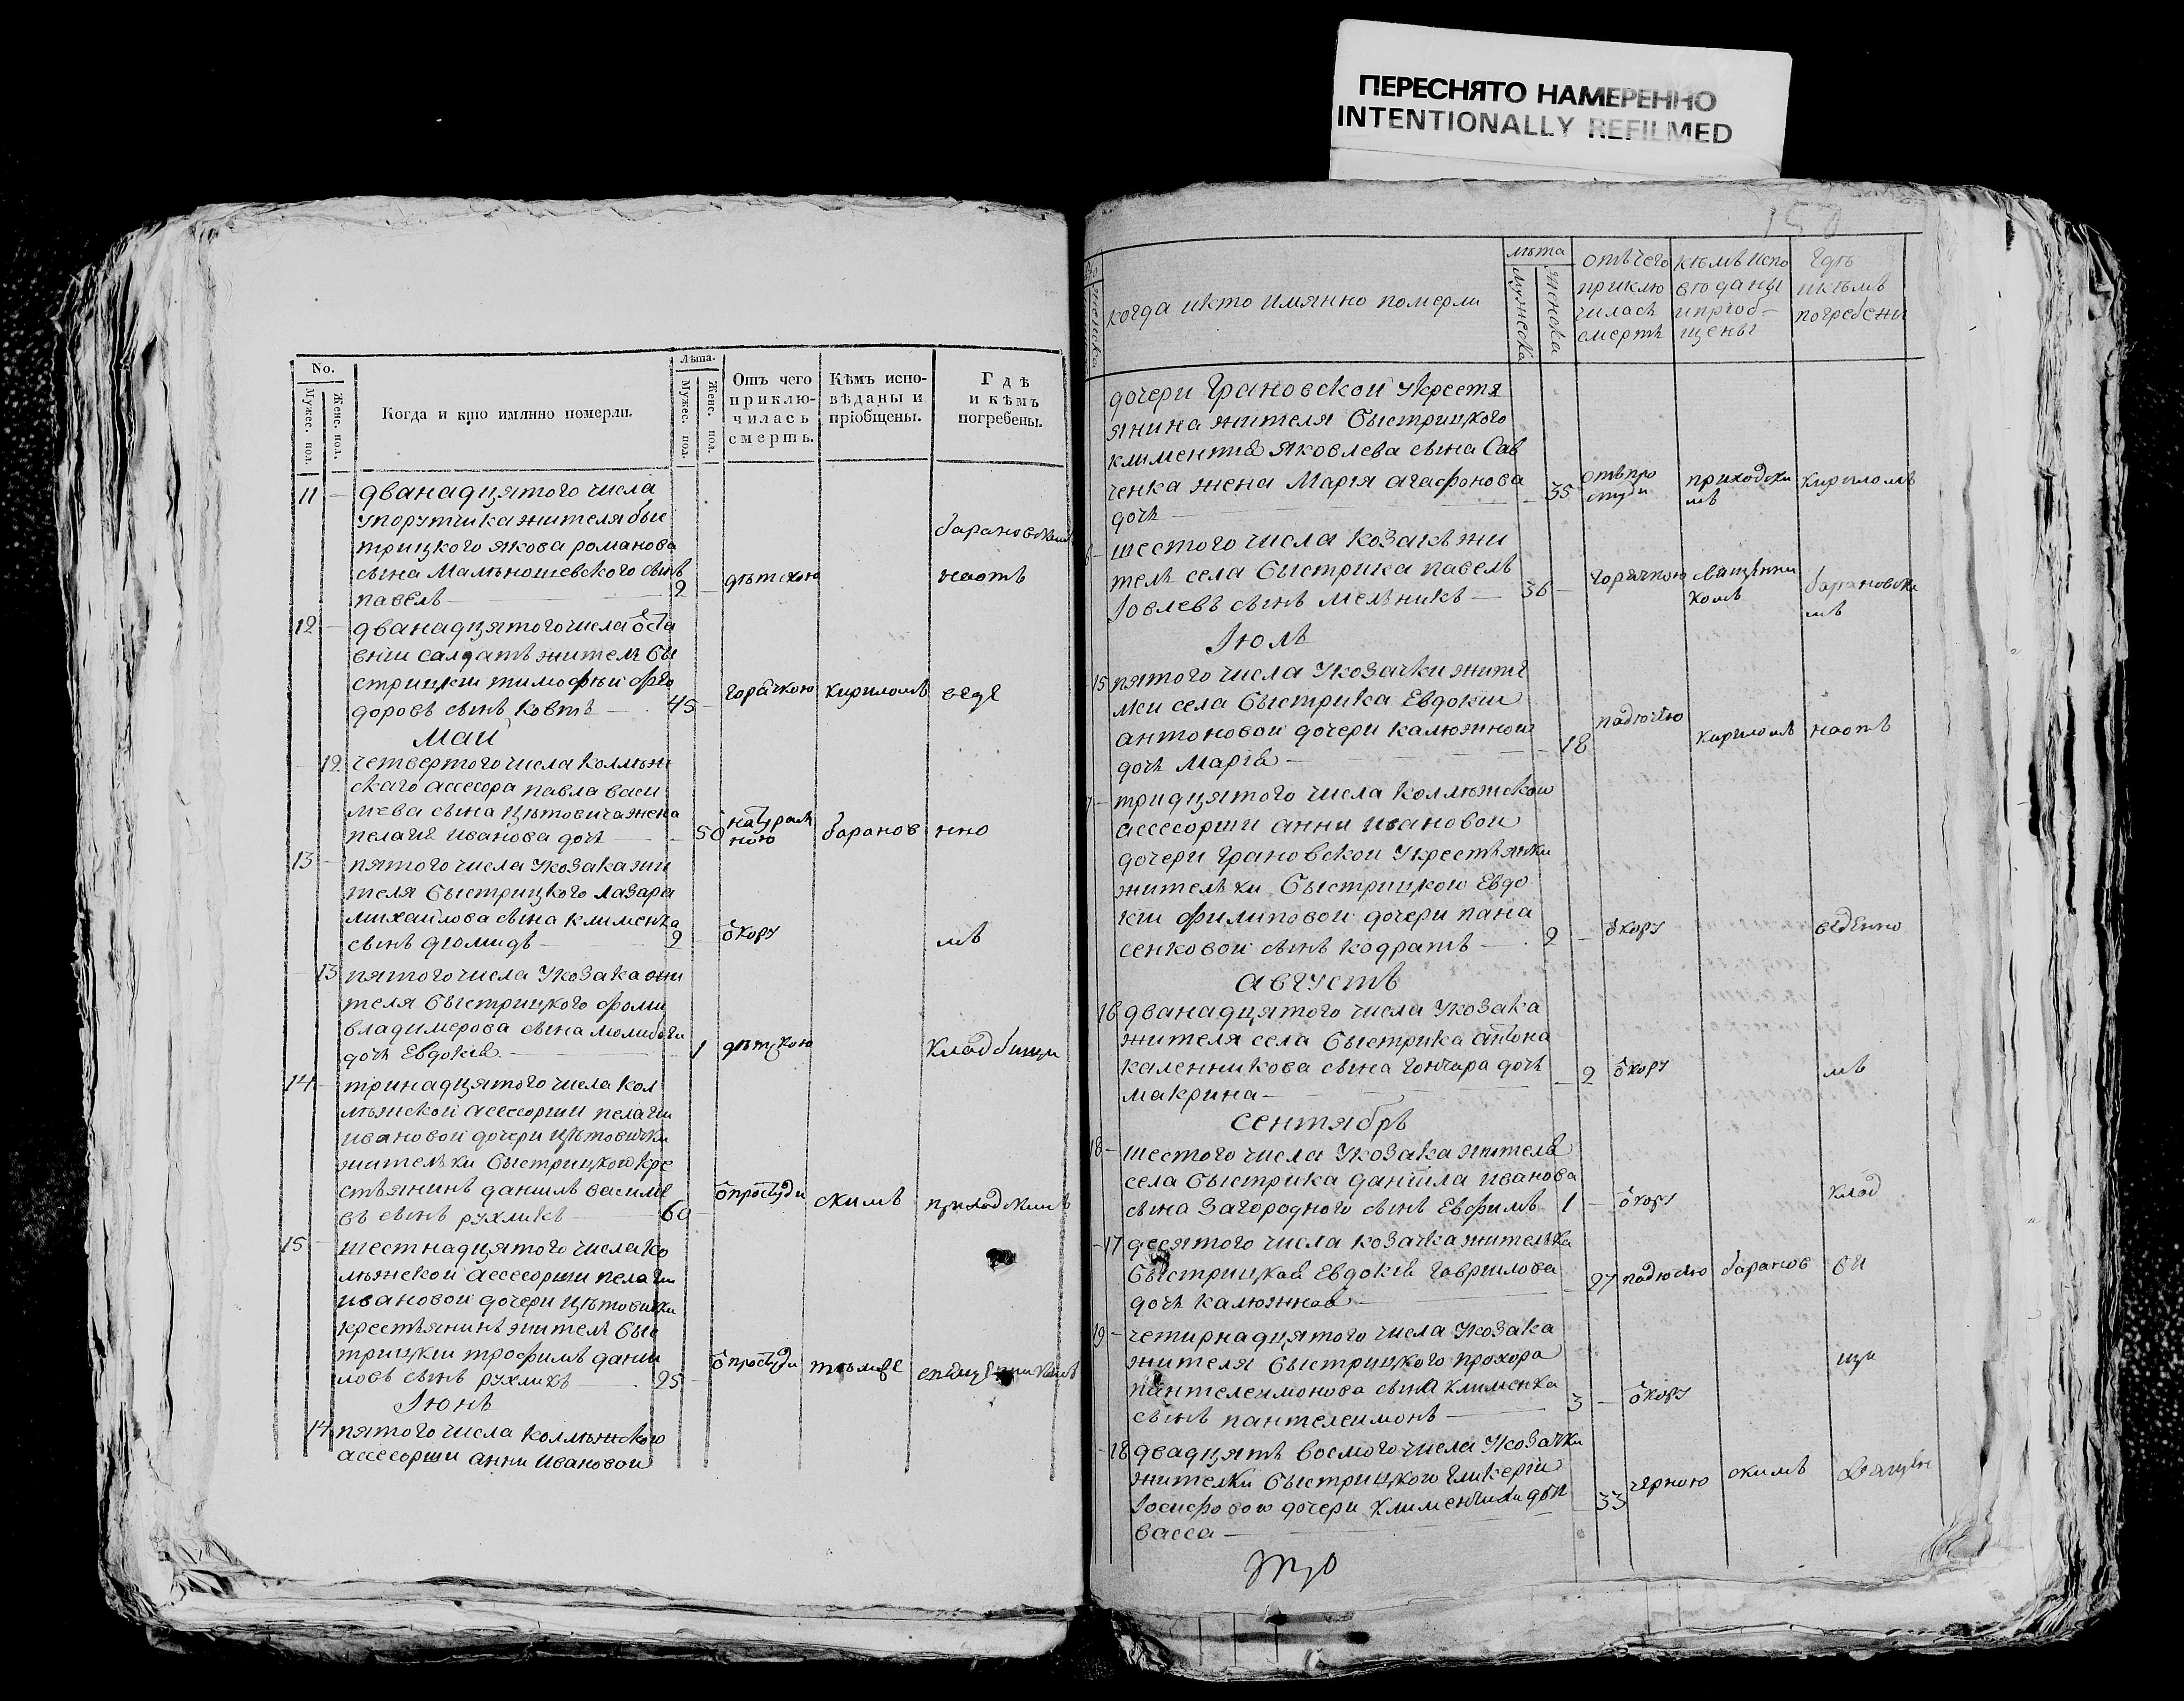 ПЕРЕСНЯТО НАМЕРЕННО
INTENTIONALLY REFILMED
No.
Мужес. пол.
Женс. пол.
Когда и кто имянно померли.
Лѣта.
Мужес. пол.
Женс. пол.
Отъ чего
приклю-
чилась
смерть.
Кѣмъ испо-
вѣданы и
пріобщены.
Гдѣ
и кѣмъ
погребены.
11 — дванадцятого числа
упорутчика жителя быс
трицкого якова романова
сына Малѣношевского сынъ
павелъ — 2 — дѣтскою наотъ
12 — дванадцятого числа ѡста
вній салдатъ житель бы
стрицкій тимофѣй фѣо
доровъ сынъ ковтъ — 45 — горячкою кириломъ
Май
12 четвертого числа коллѣж
ского ассесора павла васи
лева сына цѣтовича жена
пелагія иванова дочь — 50 натурал
ною баранов нно
13 — пятого числа укозака жи
теля быстрицкого лазара
михайлова сына клименка
сынъ діомидъ — 2 — ѿ кору мъ
13 пятого числа укозака жи
теля быстрицкого фоми
владимерова сына
дочь Евдокія — 1 дѣтскою кладбищи
14 — тринадцятого числа кол
лѣжской ассесорши пелагіи
ивановой дочери цѣтовички
жителки быстрицкой кре
стьянинъ даніилъ василе
въ сынъ рухликъ — 60 — ѿ простуди скимъ приходскимъ
15 — шестнадцятого числа ко
лѣжской ассесорши пелагіи
ивановой дочери цѣтовички
крестьянинъ житель быс
трицкій трофимъ дани
ловъ сынъ рухликъ — 25 — ѿ простуди священникомъ
Іюнь
14 пятого числа коллѣжского
ассесорши анни ивановой
150
женска
когда икто имянно померли
лѣта
мужеска
женска
отъ чего
приклю
чилась
смерть
кѣмъ испо
вѣданы
и пріоб-
щены
гдѣ
и кѣмъ
погребени
дочери Грановской укрестя
янина жителя быстрицкого
климентія яковлева сына Сав
ченка жена Марія агафонова
дочь — 35 отъ про
студи приходски
мъ кириломъ
шестого числа козакъ жи
тель села быстрика павелъ
Іовлевъ сынъ мелѣникъ — 36 — горячкою священни
комъ барановски
мъ
Іюль
15 пятого числа укозачки жите
лки села быстрика Евдокіи
антоновой дочери калюжной
дочь Марія — 18 кириломъ наотъ
тридцятого числа коллѣжской
ассесорши анни ивановой
дочери Грановской укрестьянки
жителки быстрицкой Евдо
кіи филиповой дочери пана
сенковой сынъ кодратъ — 2 — ѿ кору
августъ
16 дванадцятого числа укозака
жителя села быстрика антона
каленникова сына Гончара дочь
макрина — 2 ѿ кору мъ
Сентябрь
18 — шестого числа укозака жителя
села быстрика даніила иванова
сына Загородного сынъ Евфимъ 1 — ѿ кору клад
17 десятого числа козачка жителка
быстрицкая Евдокія гаврилова
дочь калюжная — 27 баранов би
19 — четирнадцятого числа укозака
жителя быстрицкого прохора
пантелеимонова сына клименка
сынъ пантелеимонъ — 3 — ѿ кору щи
18 двадцять восмого числа укозачки
жителки быстрицкого Гликеріи
Іосифовой дочери клименчихи дочь
васса — 33 чѣрною скимъ